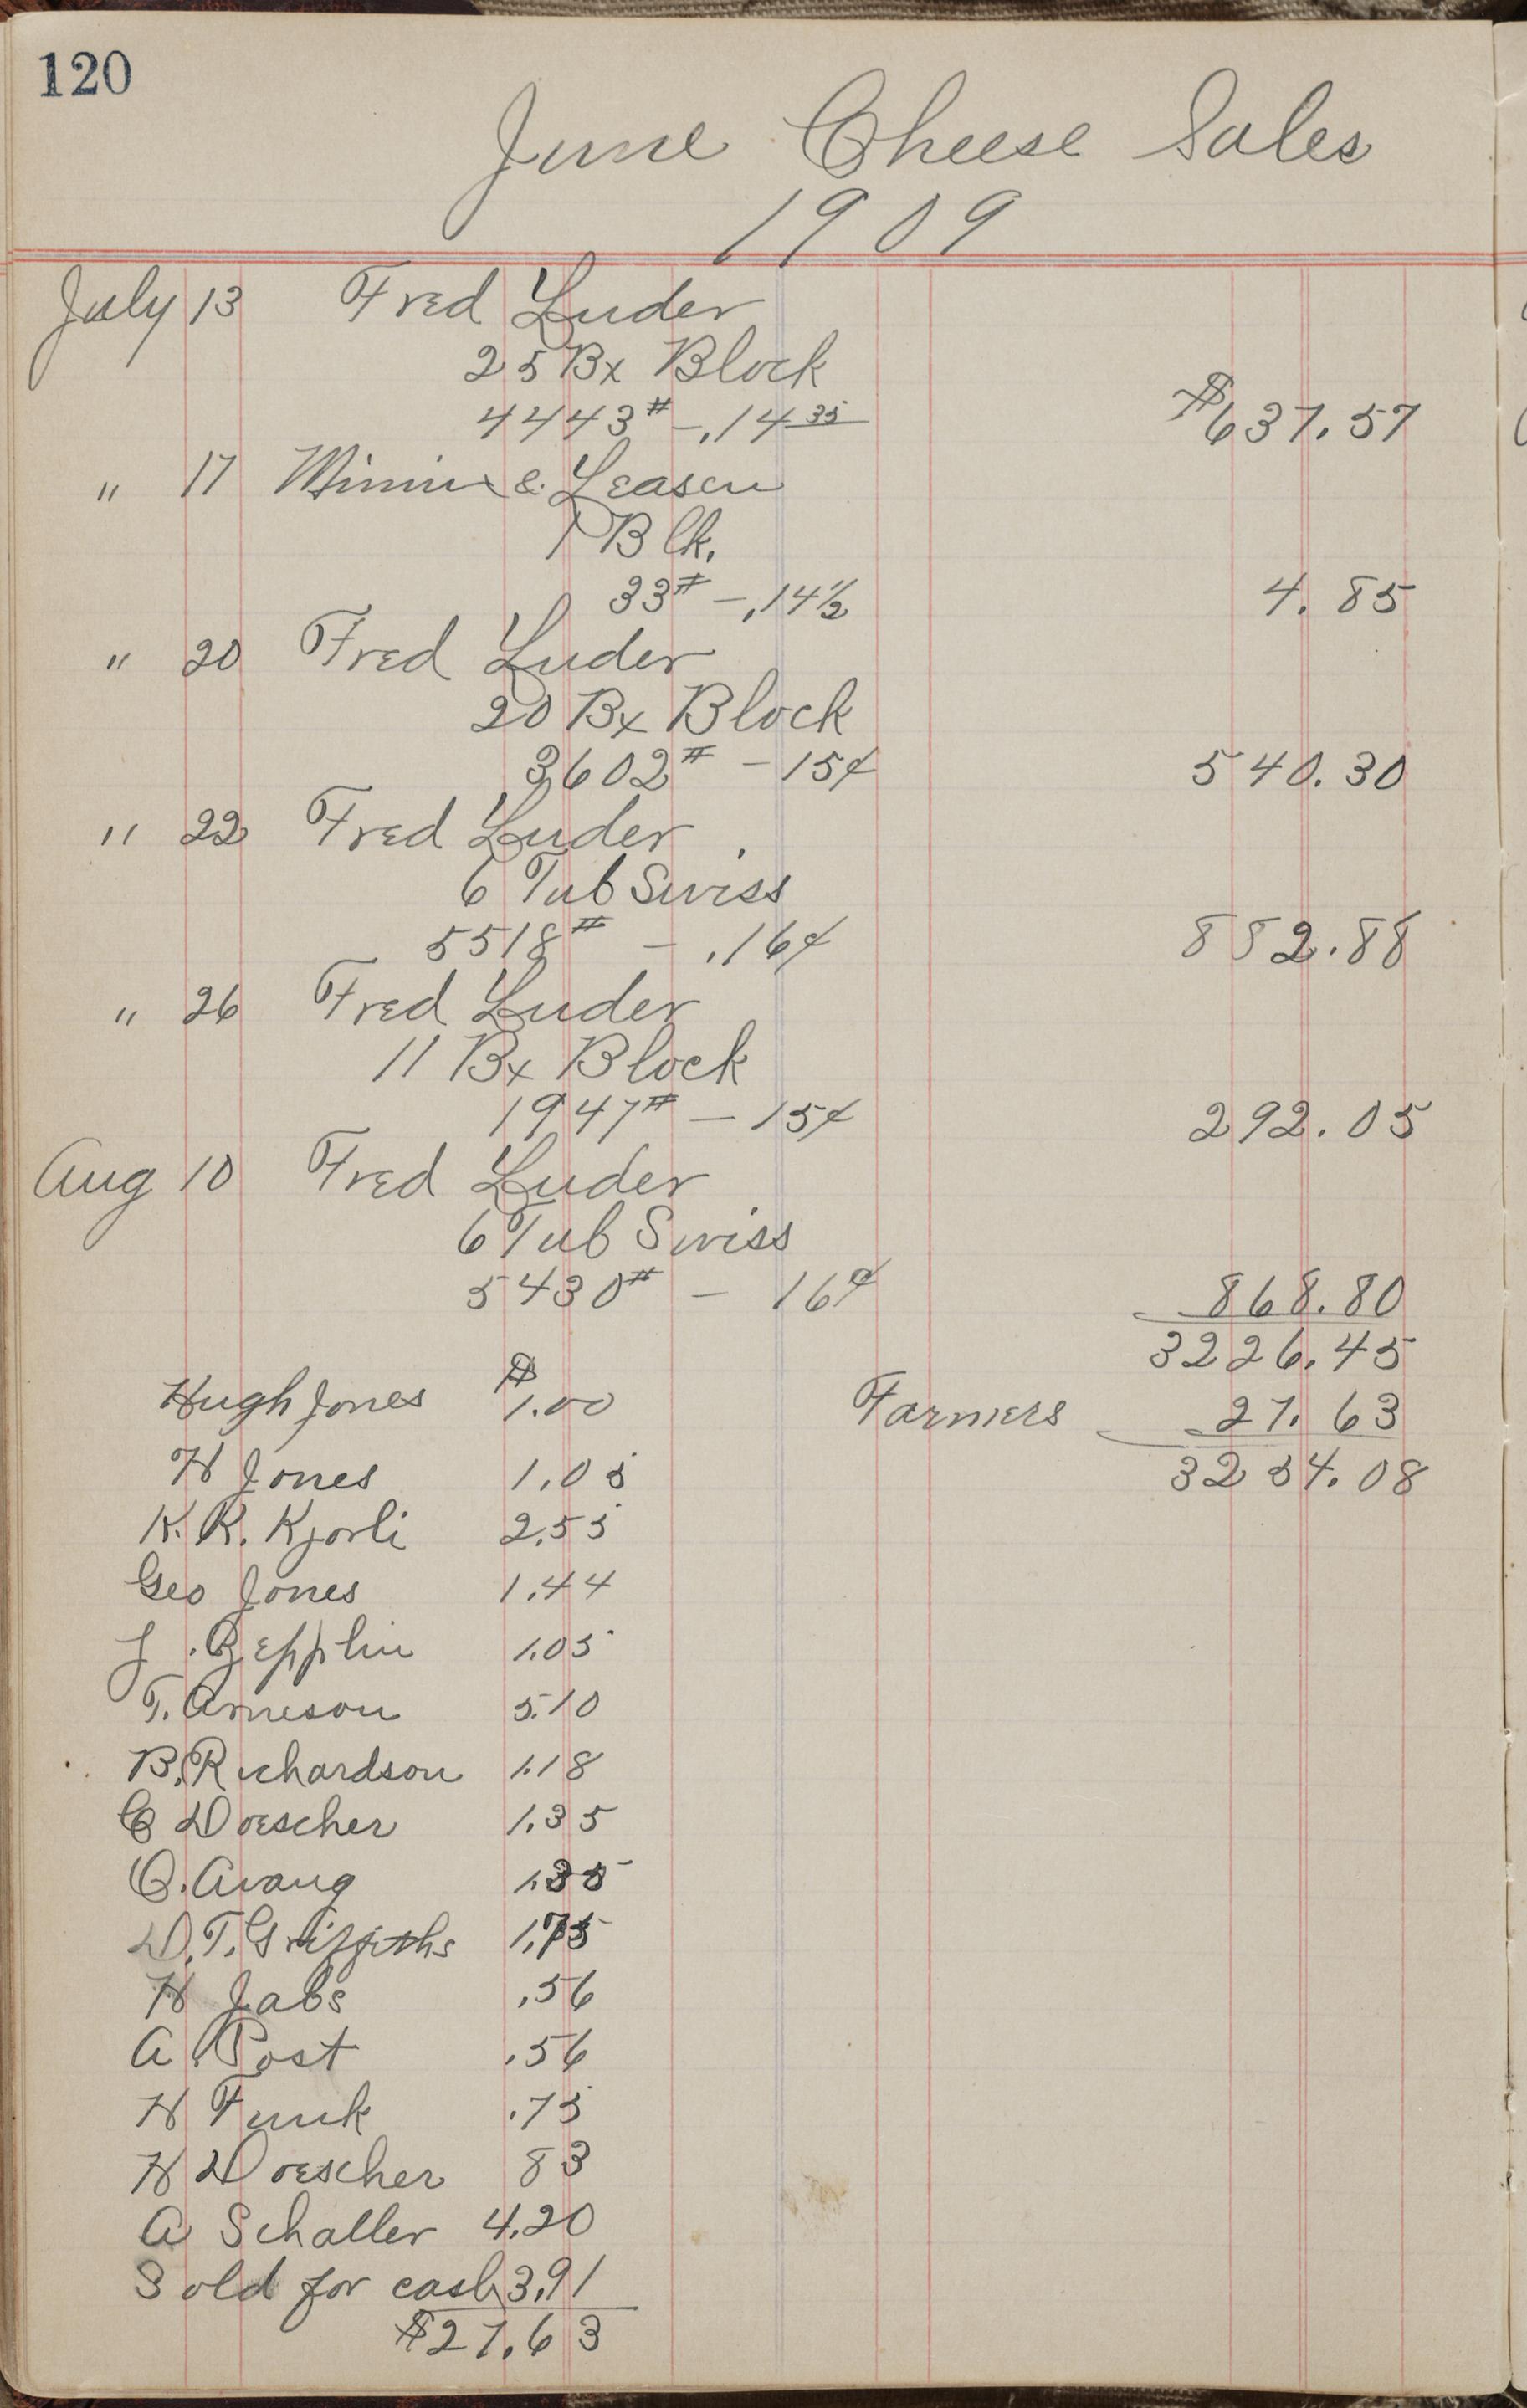 120
June Cheese Sales
1909
July 13 Fred Luder
25 Bx Block
4443# - .14 35 $637.57
" 17 & Leason
1 Blk.
33# - .14½ 4.85
" 20 Fred Luder
20 Bx Block
3602# - 15¢ 540.30
" 22 Fred Luder
6 Tub Swiss
5518# - .16¢ 882.88
" 26 Fred Luder
11 Bx Block
1947# - 15¢ 292.05
Aug 10 Fred Luder
6 Tub Swiss
5430# - 16¢ 868.80
3226.45
Hugh Jones $1.00 Farmers 27.63
H Jones 1.05 3254.08
K. K. Kjorli 2.55
Geo Jones 1.44
J. Zepplin 1.05
T. Arneson 5.10
B. Richardson 1.18
C Doescher 1.35
O. Avang 1.35
D. T. Griffiths 1.75
H Jabs .56
A. Post .56
H Funk .75
H Doescher 83
A Schaller 4.20
Sold for cash 3.91
$27.63